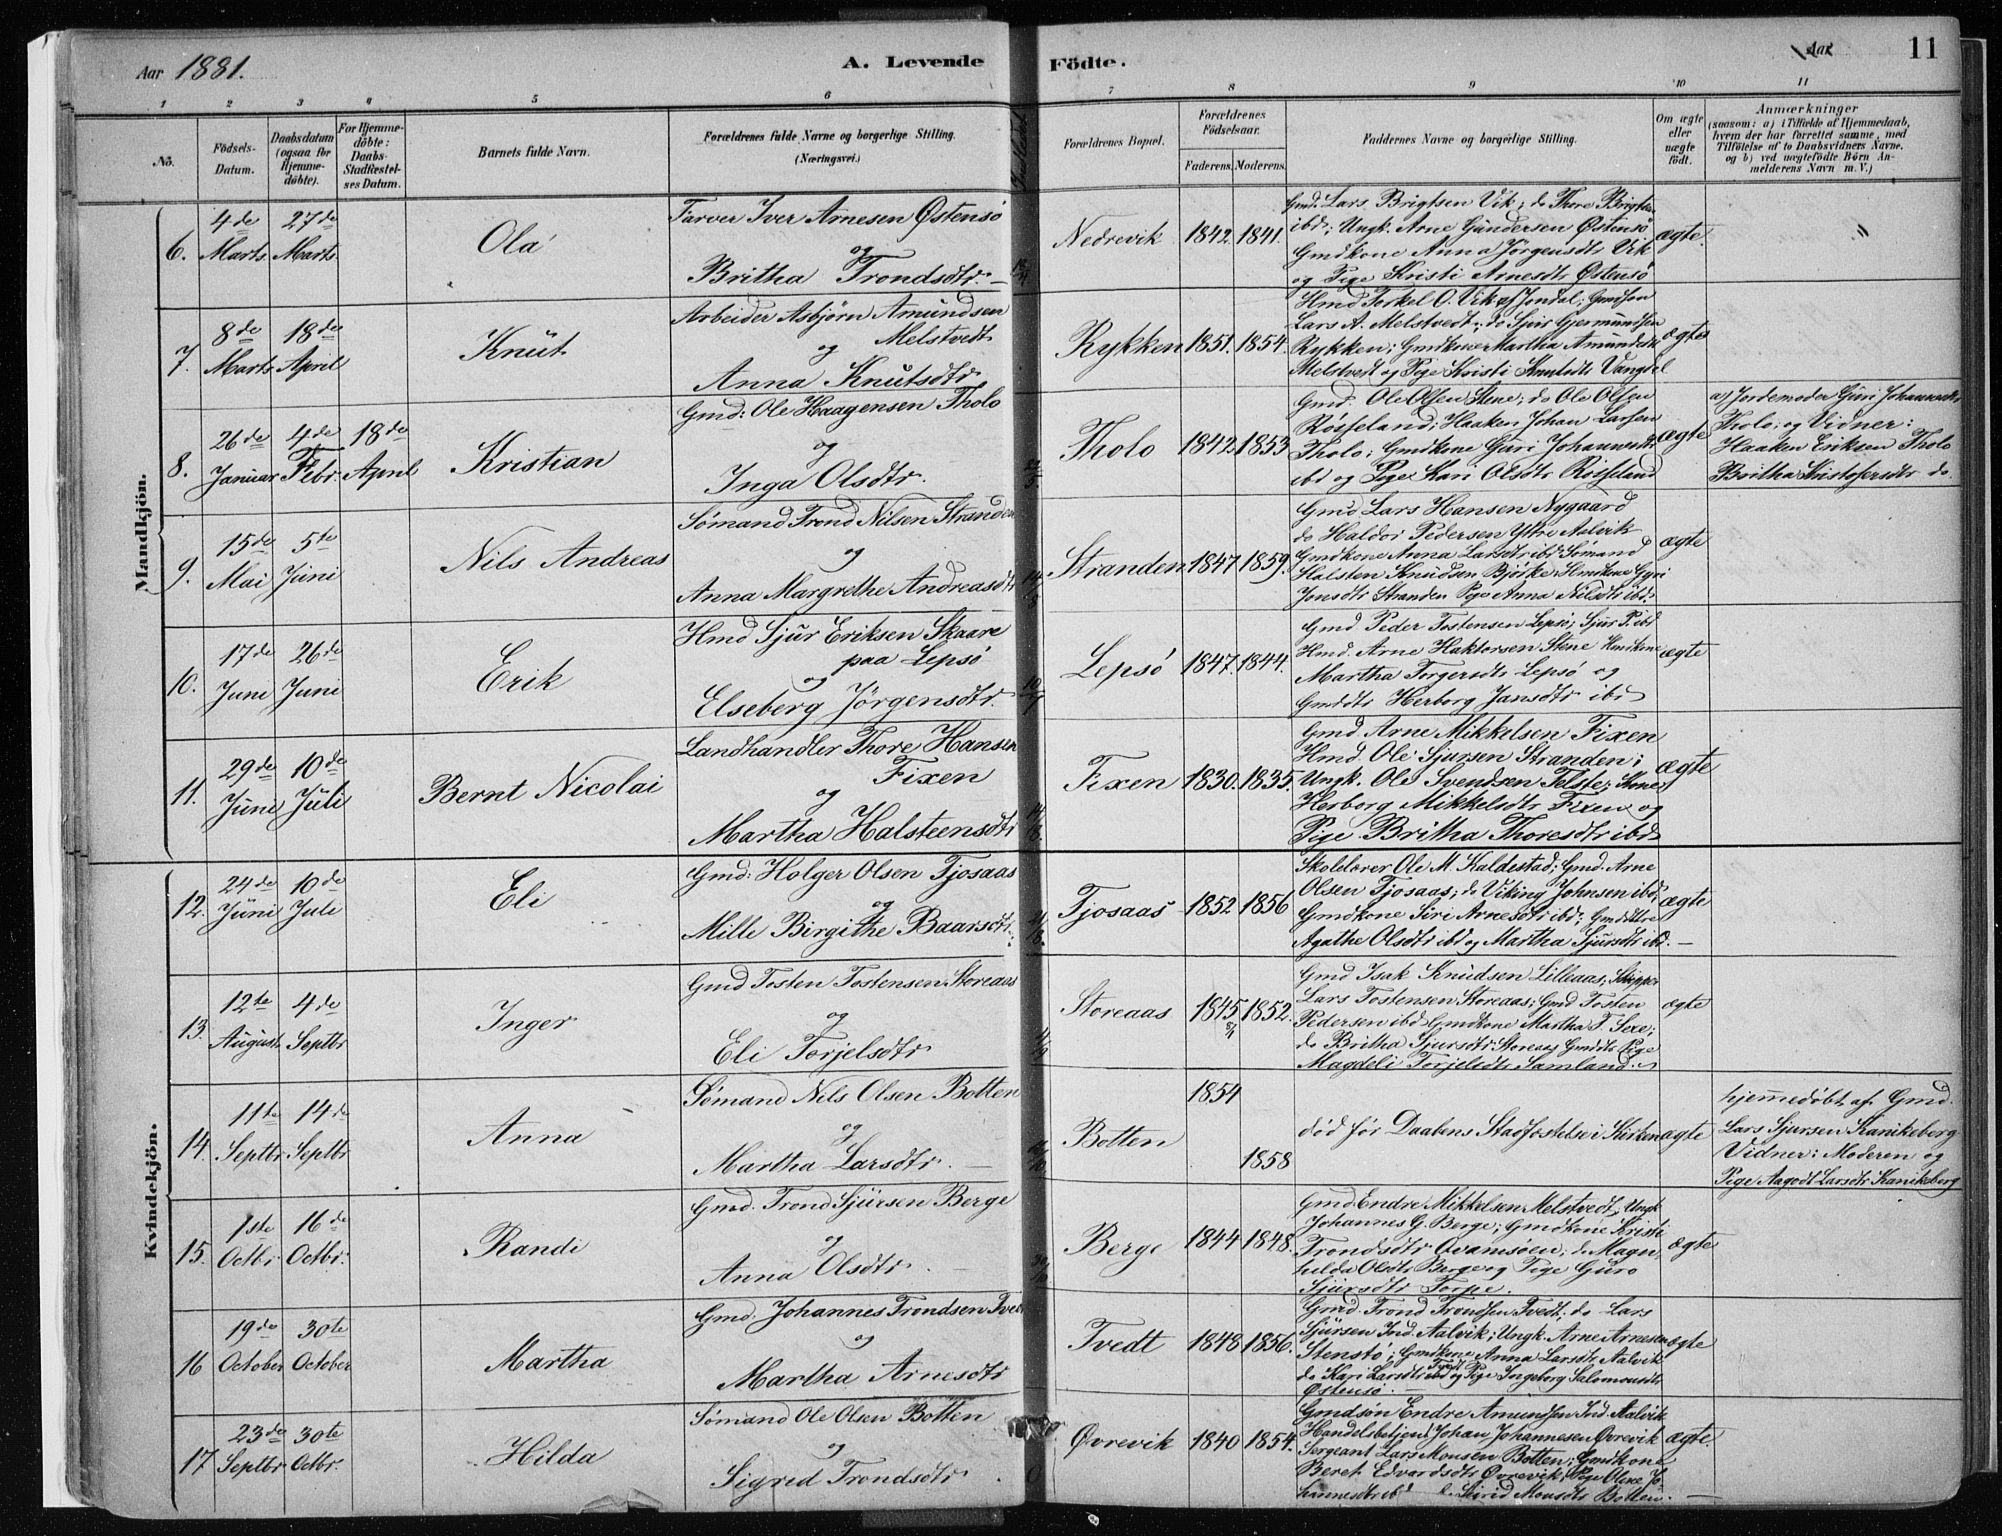 Aar 1881.
A. Levende
Födte.
Aar
11
1 2 3 4 5 6 7 8 9 10 11
No.
Födsels-
Datum.
Daabsdatum
(ogsaa for
Hjemme-
döbte).
For Hjemme-
döbte:
Daabs-
Stadfæstel-
ses Datum.
Barnets fulde Navn.
Forældrenes fulde Navne og borgerlige Stilling.
(Næringsvei.)
Forældrenes Bopæl.
Forældrenes
Födselsaar.
Faderens. Moderens.
Faddernes Navne og borgerlige Stilling.
Om ægte
eller
uægte
födt.
Anmærkninger
(saasom: a) i Tilfælde af Hjemmedaab,
hvem der har forrettet samme, med
Tilföielse af to Daabsvidners Navne.
og b) ved uægtefödte Börn An-
melderens Navn m. V.)
Mandkjön.
6.
4de
Marts
27de
Marts.
Ola
Farver Iver Arnesen Østensø
og
Britha Trondsdtr.
Nedrevik
1842.
1841.
Gmd. Lars Brigtsen Vik; do Tore Brigtsen
ibd; Ungk. Arne Gundersen Østensø
Gmdkone Anna Jørgensdtr Vik
og Pige Kristi Arnesdtr Østensø
ægte.
"
7.
8de
Marts
18de
April
Knut
Arbeider Asbjørn Amundsen
Melstvedt
og
Anna Knutsdtr
Rykken
1851.
1854.
Hmd Torkel O. Vik af Jondal; Gmdsøn
Lars A. Melstvedt; do Sjur Gjermundsen
Rykken; Gmdkone Martha Amundsdtr
Melstvedt og Pige Kristi Knutsdtr Vangdal
ægte
8.
26de
Januar
4de
Febr.
18de
April
Kristian
Gmd: Ole Haagensen Tholo
og
Inga Olsdtr.
Tholo
1842.
1853
Gmd. Ole Olsen Stene; do Ole Olsen
Røisseland; Haaken Johan Larsen
Tholo; Gmdkone Guri Johannesdtr
ibd og Pige Kari Olsdtr Røisseland
ægte
a) Jordemoder Guri Johannesdtr
Tholo; og Vidner:
Haaken Eriksen Tholo
Britha Kristofersdtr do.
9.
15de
Mai
5te
Juni
Nils Andreas
Sømand Trond Nilsen Stranden
og
Anna Margrethe Andreasdtr
Stranden
1847
1859.
Gmd Lars Hansen Nygaard
do Haldor Pedersen Ytre Aalvik
Gmdkone Anna Larsdtr ibd Sømand
Halsten Knudsen Bjørke; Hmdkone Gyri
Jonsdtr Stranden Pige Anna Nilsdtr ibd.
ægte
10.
17de
Juni
26de
Juni
Erik
Hmd Sjur Eriksen Skaare
paa Lepsø
og
Elseberg Jørgensdtr.
10/7
Lepsø
1847.
1844.
Gmd Peder Tostensen Lepsø; Sjur P. ibd
Hmd. Arne Haktorsen Stene Hmdkone
Martha Torgersdtr Lepsø og
Gmddtr Herborg Jansdtr ibd
ægte
11.
29de
Juni
10de
Juli
Bernt Nicolai
Landhandler Thore Hansen
Fixen
og
Martha Halsteensdtr
14/8.
Fixen
1830.
1835.
Gmd. Arne Mikkelsen Fixen
Hmd. Ole Sjursen Stranden;
Ungk. Ole Svendsen Telste; Kone
Herborg Mikkelsdtr Fixen og
Pige Britha Thoresdtr ibd
ægte
Kvindekjön.
12.
24de
Juni
10de
Juli
Eli
Gmd: Holger Olsen Tjosaas
og
Mille Birgithe Baarsdtr.
Tjosaas
1852
1856
Skolelærer Ole M. Kaldestad; Gmd. Arne
Olsen Tjosaas; do Viking Johnsen ibd;
Gmdkone Siri Arnesdtr ibd; Gmddttre
Agathe Olsdtr ibd og Martha Sjursdtr ibd.
ægte
13.
12te
August
4de
Septbr
Inger
Gmd Tosten Tostensen Storeaas
og
Eli Torjelsdtr
Storeaas
1845
1852.
Gmd Isak Knudsen Lilleaas, Skipper
Lars Tostensen Storeaas; Gmd Tosten
Pedersen ibd Gmdkone Martha T. Sexe;
do Britha Sjursdtr Storeaas Gmddtr Pige
Magdeli Torjelsdtr Samland.
ægte
14.
11te
Septbr
14de
Septbr
Anna
Sømand Nils Olsen Botten
og
Martha Larsdtr.
Botten
1854
1858
død før Daabens Stadfæstelse i Kirken
ægte
hjemmedøbt af Gmd.
Lars Sjursen Kanikeberg
Vidner: Moderen og
Pige Aagodt Larsdtr Kanikeberg
15.
1ste
Octbr.
16de
Octbr.
Randi
Gmd. Trond Sjursen Berge
og
Anna Olsdtr.
30/10
Berge
1844
1848.
Gmd. Endre Mikkelsen Melstvedt; Ungk
Johannes G. Berge; Gmdkone Kristi
Trondsdtr Ovamsøen; do Magn-
hilda Olsdtr Berge og Pige Guro
Sjursdtr Torpe.
ægte
16
19de
October
30te
October
Martha
Gmd. Johannes Trondsen Tvedt
og
Martha Arnesdtr
Tvedt
1848
1856.
Gmd. Trond Trondsen Tvedt; do Lars
Sjursen Ind. Aalvik; Ungk. Arne Arnesen
Stenstø; Gmdkone Anna Larsdtr Aalvik
do Kari Larsdtr Tvedt og Pige Ingeborg Salomonsdtr
Østensø.
ægte
17
23de
Septbr
30te
Octbr.
Hilda
Sømand Ole Olsen Botten
og
Sigrid Trondsdtr
Øvrevik
1840
1854.
Gmdsøn Endre Amundsen Ind. Aalvik
Handelsbetjent Johan Johannesen Øvrevik
Sergeant Lars Monsen Botten; Gmdkone
Beret Edvardsdtr Øvrevik; Pige Oline Jo-
hannesdtr ibd do Sigrid Monsdtr Botten.
ægte.